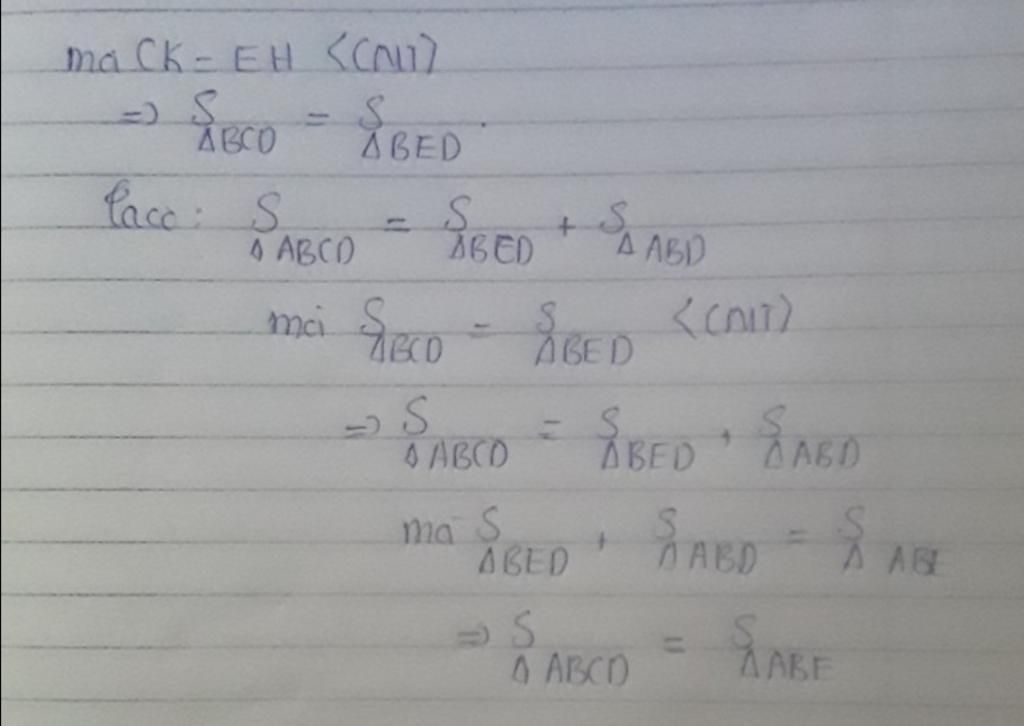 mà CK = EH <(CMT)
=> S ΔBCD = S ΔBED.
Ta có: S Δ ABCD = S ΔBED + S Δ ABD
mà S ΔBCD = S ΔBED <(CMT)
=> S Δ ABCD = S ΔBED + S Δ ABD
mà S ΔBED + S Δ ABD = S Δ ABE
=> S Δ ABCD = S Δ ABE